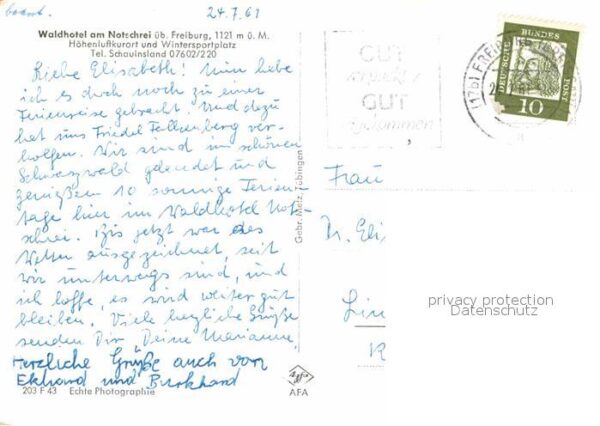 beantw.
24.7.61
Waldhotel am Notschrei üb. Freiburg, 1121 m ü. M.
Höhenluftkurort und Wintersportplatz
Tel. Schauinsland 07602/220
Liebe Elisabeth! Nun habe
ich es doch noch zu einer
Ferienreise gebracht. Und dazu
hat uns Friedel Falkenberg ver-
holfen. Wir sind im schönen
Schwarzwald gelandet und
genießen 10 sonnige Ferien-
tage hier im Waldhotel Not-
schrei. Bis jetzt war das
Wetter ausgezeichnet, seit
wir unterwegs sind, und
ich hoffe, es wird weiter gut
bleiben. Viele herzliche Grüße
senden Dir Deine Marianne.
Herzliche Grüße auch von
Ekhard und Burkhard
203 F 43 Echte Photographie
Gebr. Metz, Tübingen
Agfa
AFA
GUT
verpackt
GUT
angekommen
(17b) FREIBURG
DEUTSCHE BUNDESPOST
10
Frau
Dr. Eli
Lin
privacy protection
Datenschutz